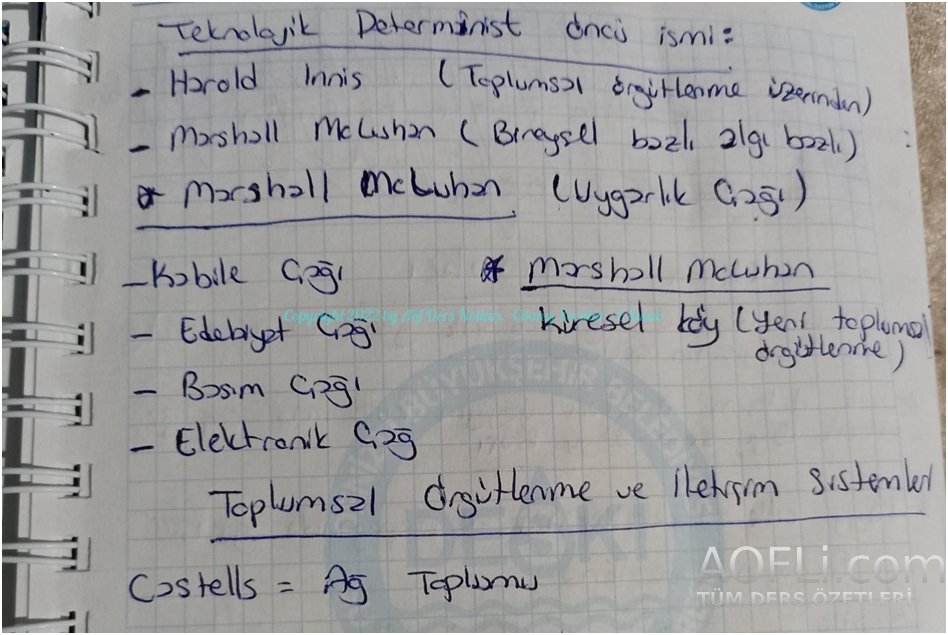 Teknolojik Determinist öncü ismi:
- Harold Innis (Toplumsal örgütlenme üzerinden)
- Marshall McLuhan (Bireysel bazlı algı bazlı) :
* Marshall McLuhan (Uygarlık Çağı)
- Kabile Çağı
- Edebiyat Çağı
- Basım Çağı
- Elektronik Çağ
* Marshall McLuhan
Küresel köy (yeni toplumsal
örgütlenme)
Copyright 2022 by Aöf Ders Notları
Toplumsal örgütlenme ve iletişim sistemleri
Castells = Ağ Toplumu
BÜYÜKŞEHİR BELEDİYE
DESKİ
AOFLi.com
TÜM DERS ÖZETLERİ